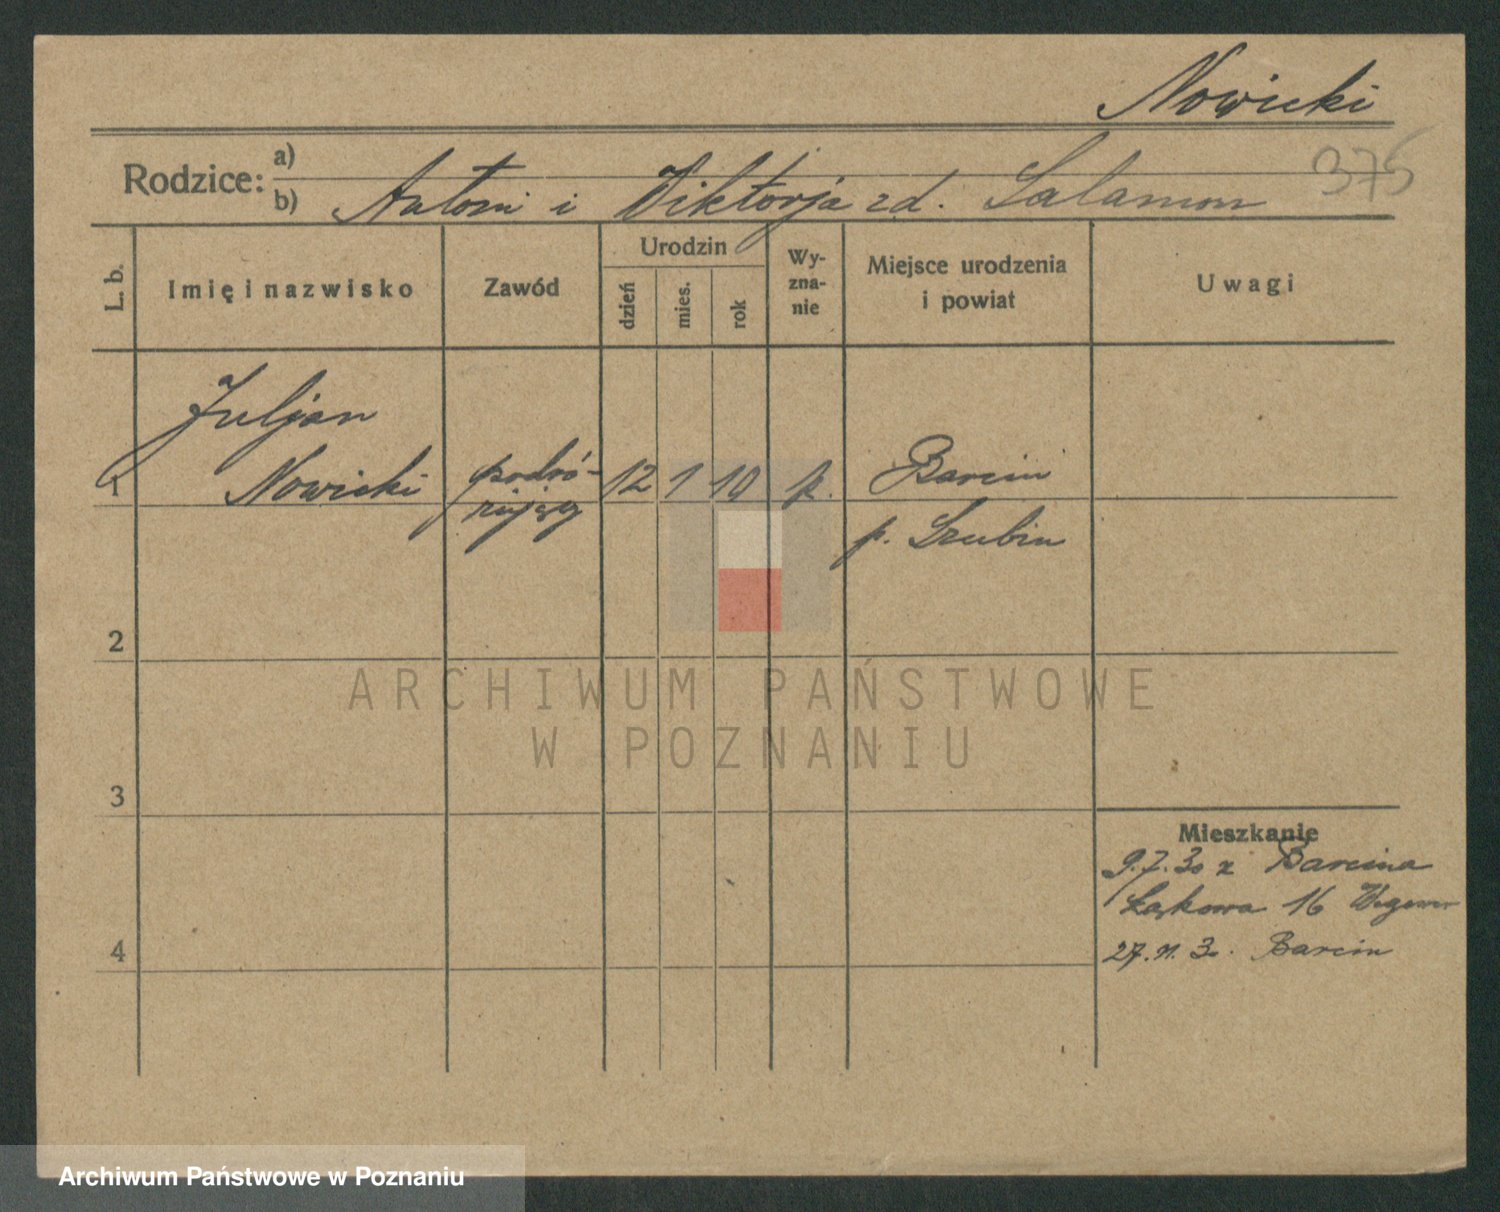 Nowicki
375
Rodzice: a)
b) Antoni i Wiktorja zd. Salamon
L. b.
Imię i nazwisko
Zawód
Urodzin
dzień
mies.
rok
Wy-
zna-
nie
Miejsce urodzenia
i powiat
Uwagi
Juljan
1 Nowicki
podró-
żujący
12 1 10 k.
Barcin
p. Szubin
2
3
4
ARCHIWUM PAŃSTWOWE
W POZNANIU
Mieszkanie
9.7.30 z Barcina
Łąkowa 16
27.11.30. Barcin
Archiwum Państwowe w Poznaniu